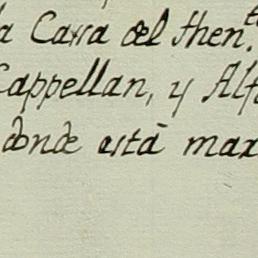 la Cassa del then.te
Cappellan, y Alf
donde està mar